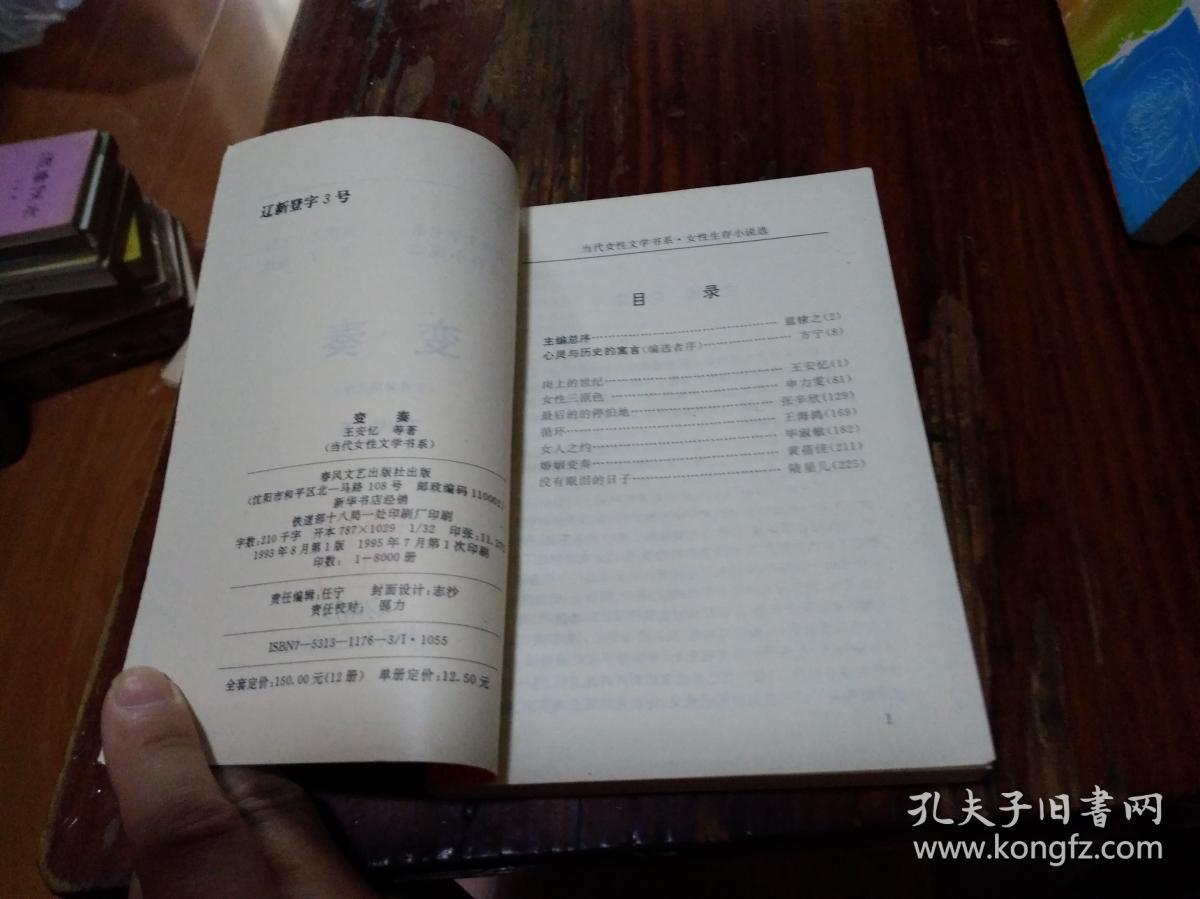 辽新登字3号
变 奏
变 奏
王安忆 等著
(当代女性文学书系)
春风文艺出版社出版
(沈阳市和平区北一马路108号 邮政编码110001)
新华书店经销
铁道部十八局一处印刷厂印刷
字数:210千字 开本787×1029 1/32 印张:11.275
1993年8月第1版 1995年7月第1次印刷
印数: 1—8000册
责任编辑:任宁 封面设计:志沙
责任校对:
ISBN7—5313—1176—3/I·1055
全套定价:150.00元(12册) 单册定价:12.50元
当代女性文学书系·女性生存小说选
目 录
主编总序……蓝棣之(2)
心灵与历史的寓言(编选者序)……方宁(8)
岗上的世纪……王安忆(1)
女性三原色……申力雯(81)
最后的的停泊地……张辛欣(129)
循环……王海鸰(169)
女人之约……毕淑敏(182)
婚姻变奏……黄蓓佳(211)
没有眼泪的日子……陆星儿(225)
1
孔夫子旧書网
www.kongfz.com